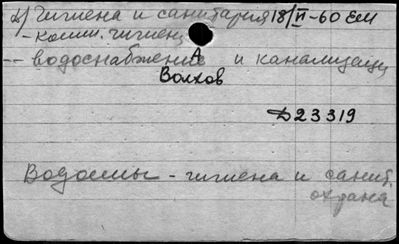 2) Гигиена и санитария 18/VI-60 Ем
- комм. гигиена
-- водоснабжение и канализаци
А
Волхов
Д23319
Водоемы - гигиена и санит.
охрана